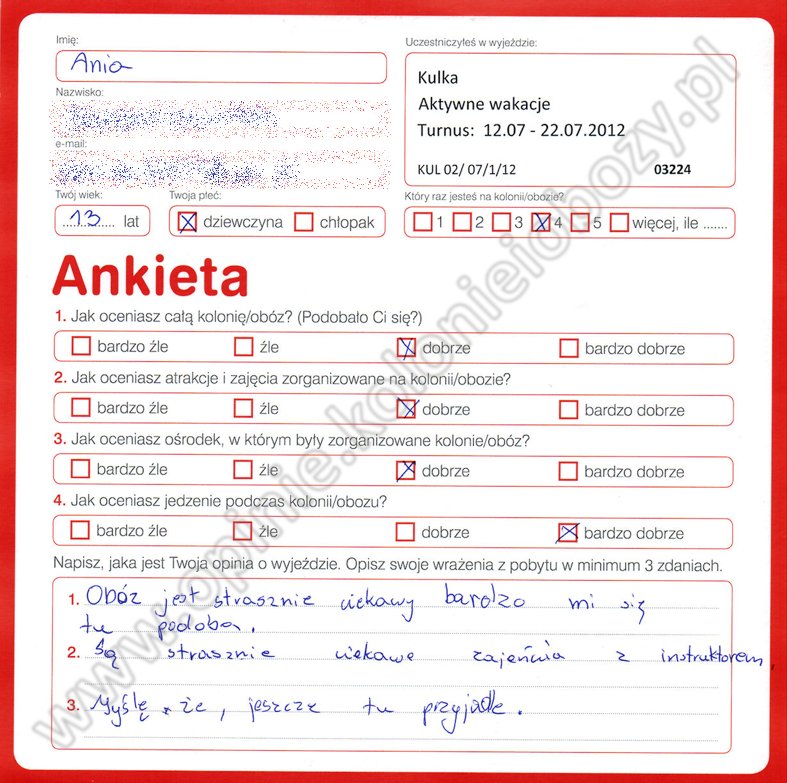 Imię:
Ania
Uczestniczyłeś w wyjeździe:
Kulka
Aktywne wakacje
Turnus: 12.07 - 22.07.2012
KUL 02/ 07/1/12 03224
Nazwisko:
e-mail:
Twój wiek: Twoja płeć: Który raz jesteś na kolonii/obozie?
13 lat dziewczyna chłopak 1 2 3 4 5 więcej, ile .......
Ankieta
1. Jak oceniasz całą kolonię/obóz? (Podobało Ci się?)
bardzo źle źle dobrze bardzo dobrze
2. Jak oceniasz atrakcje i zajęcia zorganizowane na kolonii/obozie?
bardzo źle źle dobrze bardzo dobrze
3. Jak oceniasz ośrodek, w którym były zorganizowane kolonie/obóz?
bardzo źle źle dobrze bardzo dobrze
4. Jak oceniasz jedzenie podczas kolonii/obozu?
bardzo źle źle dobrze bardzo dobrze
Napisz, jaka jest Twoja opinia o wyjeździe. Opisz swoje wrażenia z pobytu w minimum 3 zdaniach.
1. Obóz jest strasznie ciekawy bardzo mi się
tu podoba.
2. Są strasznie ciekawe zajeńcia z instruktorem,
3. Myślę, że, jeszcze tu przyjadę.
www.opinie.kolonieiobozy.pl